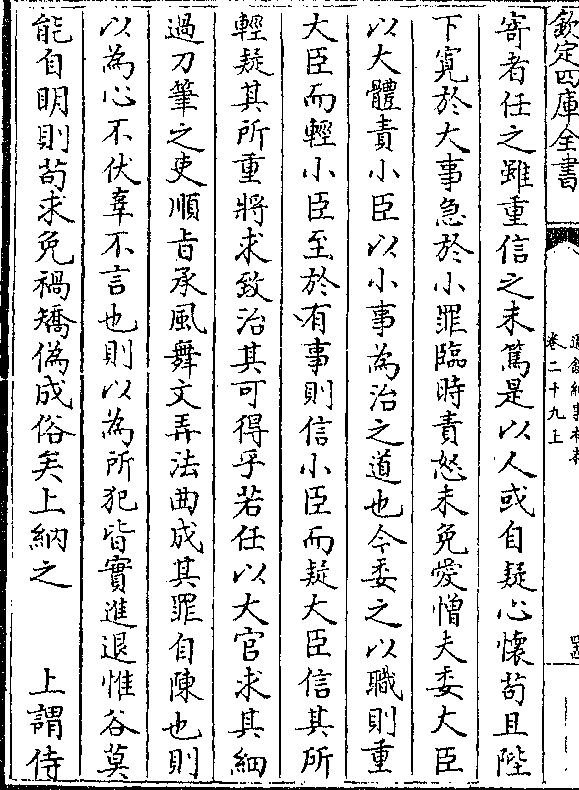 欽定四庫全書
通鑑紀事本末
卷二十九上
寄者任之雖重信之未篤是以人或自疑心懷苟且陛
下寛於大事急於小罪臨時責怒未免愛憎夫委大臣
以大體責小臣以小事為治之道也今委之以職則重
大臣而輕小臣至於有事則信小臣而疑大臣信其所
輕疑其所重將求致治其可得乎若任以大官求其細
過刀筆之吏順旨承風舞文弄法曲成其罪自陳也則
以為心不伏辜不言也則以為所犯皆實進退惟谷莫
能自明則苟求免禍矯偽成俗矣上納之　上謂侍